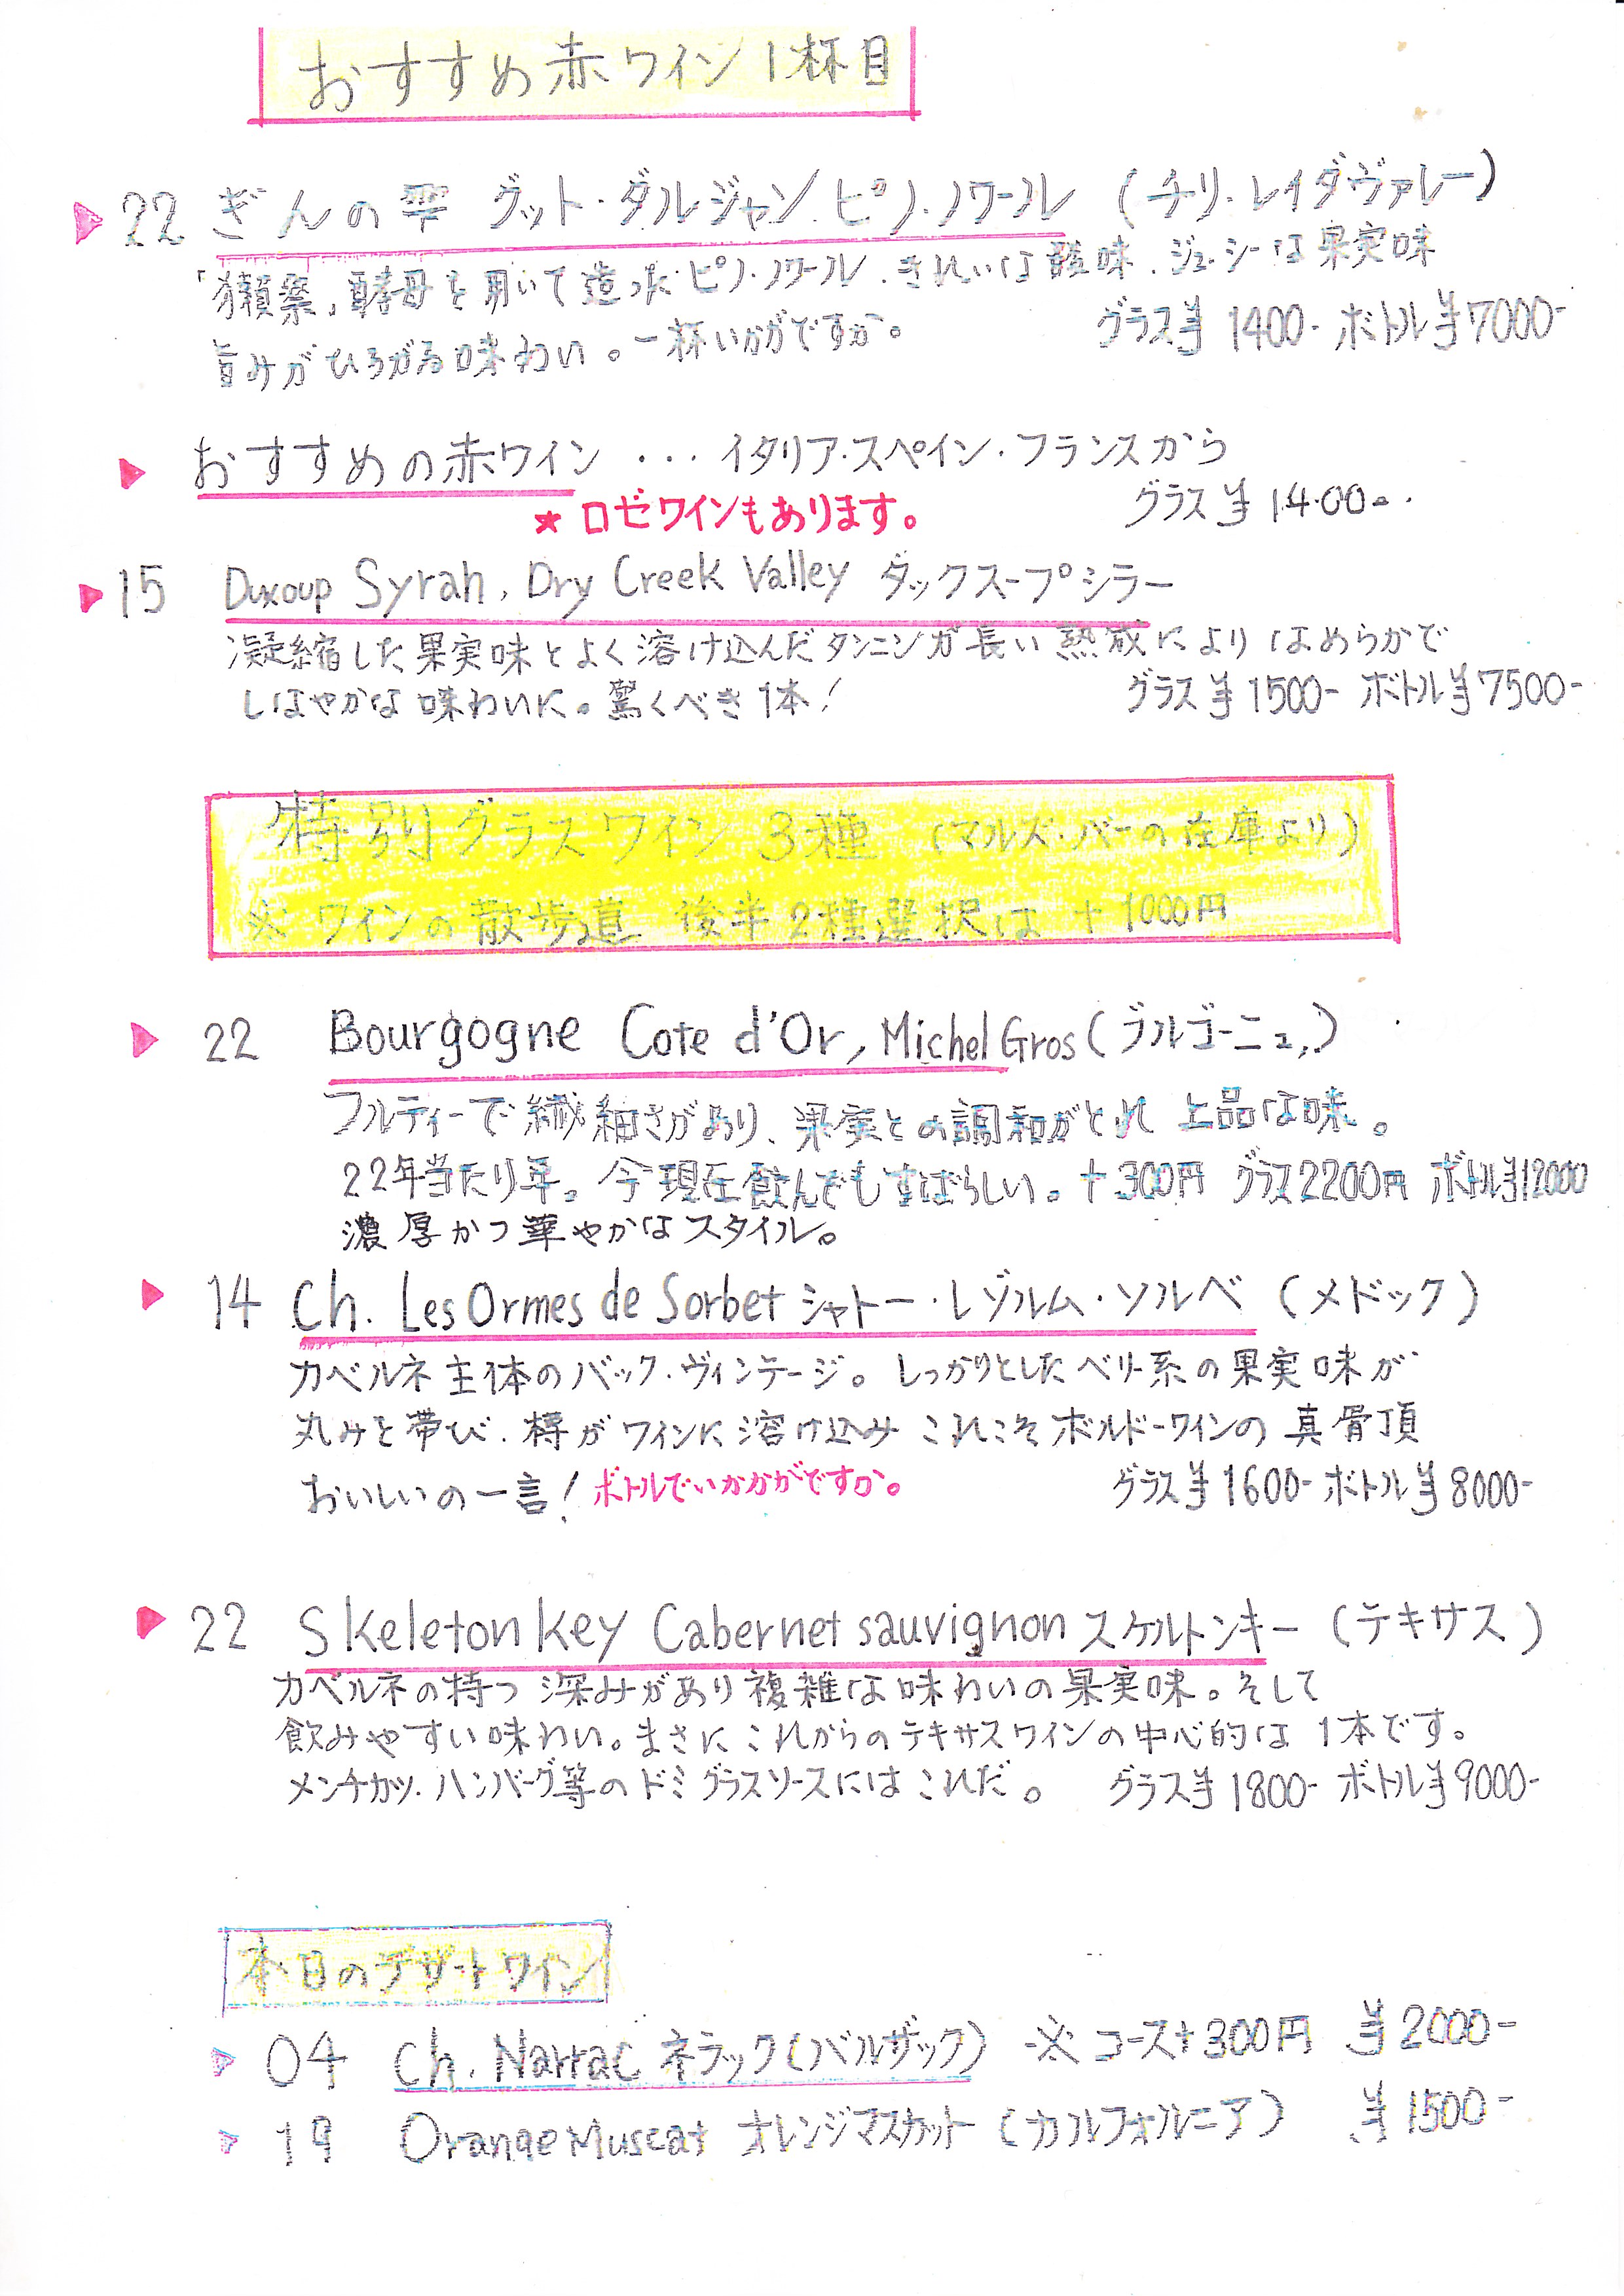 おすすめ赤ワイン 1杯目
22 ぎんの雫 グット・ダルジャン ピノ・ノワール (チリ・レイダ・ヴァレー)
「獺祭」酵母を用いて造ったピノ・ノワール、きれいな酸味、ジューシーな果実味
旨みがひろがる味わい。一杯いかがですか。 グラス¥1400- ボトル¥7000-
おすすめの赤ワイン ・・・イタリア・スペイン・フランスから
★ロゼワインもあります。 グラス¥1400-
15 Duxoup Syrah, Dry Creek Valley ダックスープシラー
凝縮した果実味とよく溶け込んだタンニンが長い熟成によりなめらかで
しなやかな味わいに。驚くべき1本! グラス¥1500- ボトル¥7500-
特別グラスワイン 3種 (マルズ・バーの在庫より)
※ワインの散歩道 後半2種選択は +1000円
22 Bourgogne Cote d'Or, Michel Gros (ブルゴーニュ)
フルティーで繊細さがあり、果実との調和がとれ 上品な味。
22年当たり年。今現在飲んでもすばらしい。+300円 グラス2200円 ボトル¥12000
濃厚かつ華やかなスタイル。
14 Ch. Les Ormes de Sorbet シャトー・レゾルム・ソルベ (メドック)
カベルネ主体のバック・ヴィンテージ。しっかりとしたベリー系の果実味が
丸みを帯び、樽がワインに溶け込み これこそボルドーワインの真骨頂
おいしいの一言! ボトルでいかかがですか。 グラス¥1600- ボトル¥8000-
22 Skeleton key Cabernet sauvignon スケルトンキー (テキサス)
カベルネの持つ 深みがあり複雑な味わいの果実味。そして
飲みやすい味わい。まさにこれからのテキサスワインの中心的な1本です。
メンチカツ・ハンバーグ等のドミグラスソースにはこれだ。 グラス¥1800- ボトル¥9000-
本日のデザートワイン
04 Ch. Narrac ネラック(バルザック) ※コース+300円 ¥2000-
19 Orange Muscat オレンジマスカット (カルフォルニア) ¥1500-